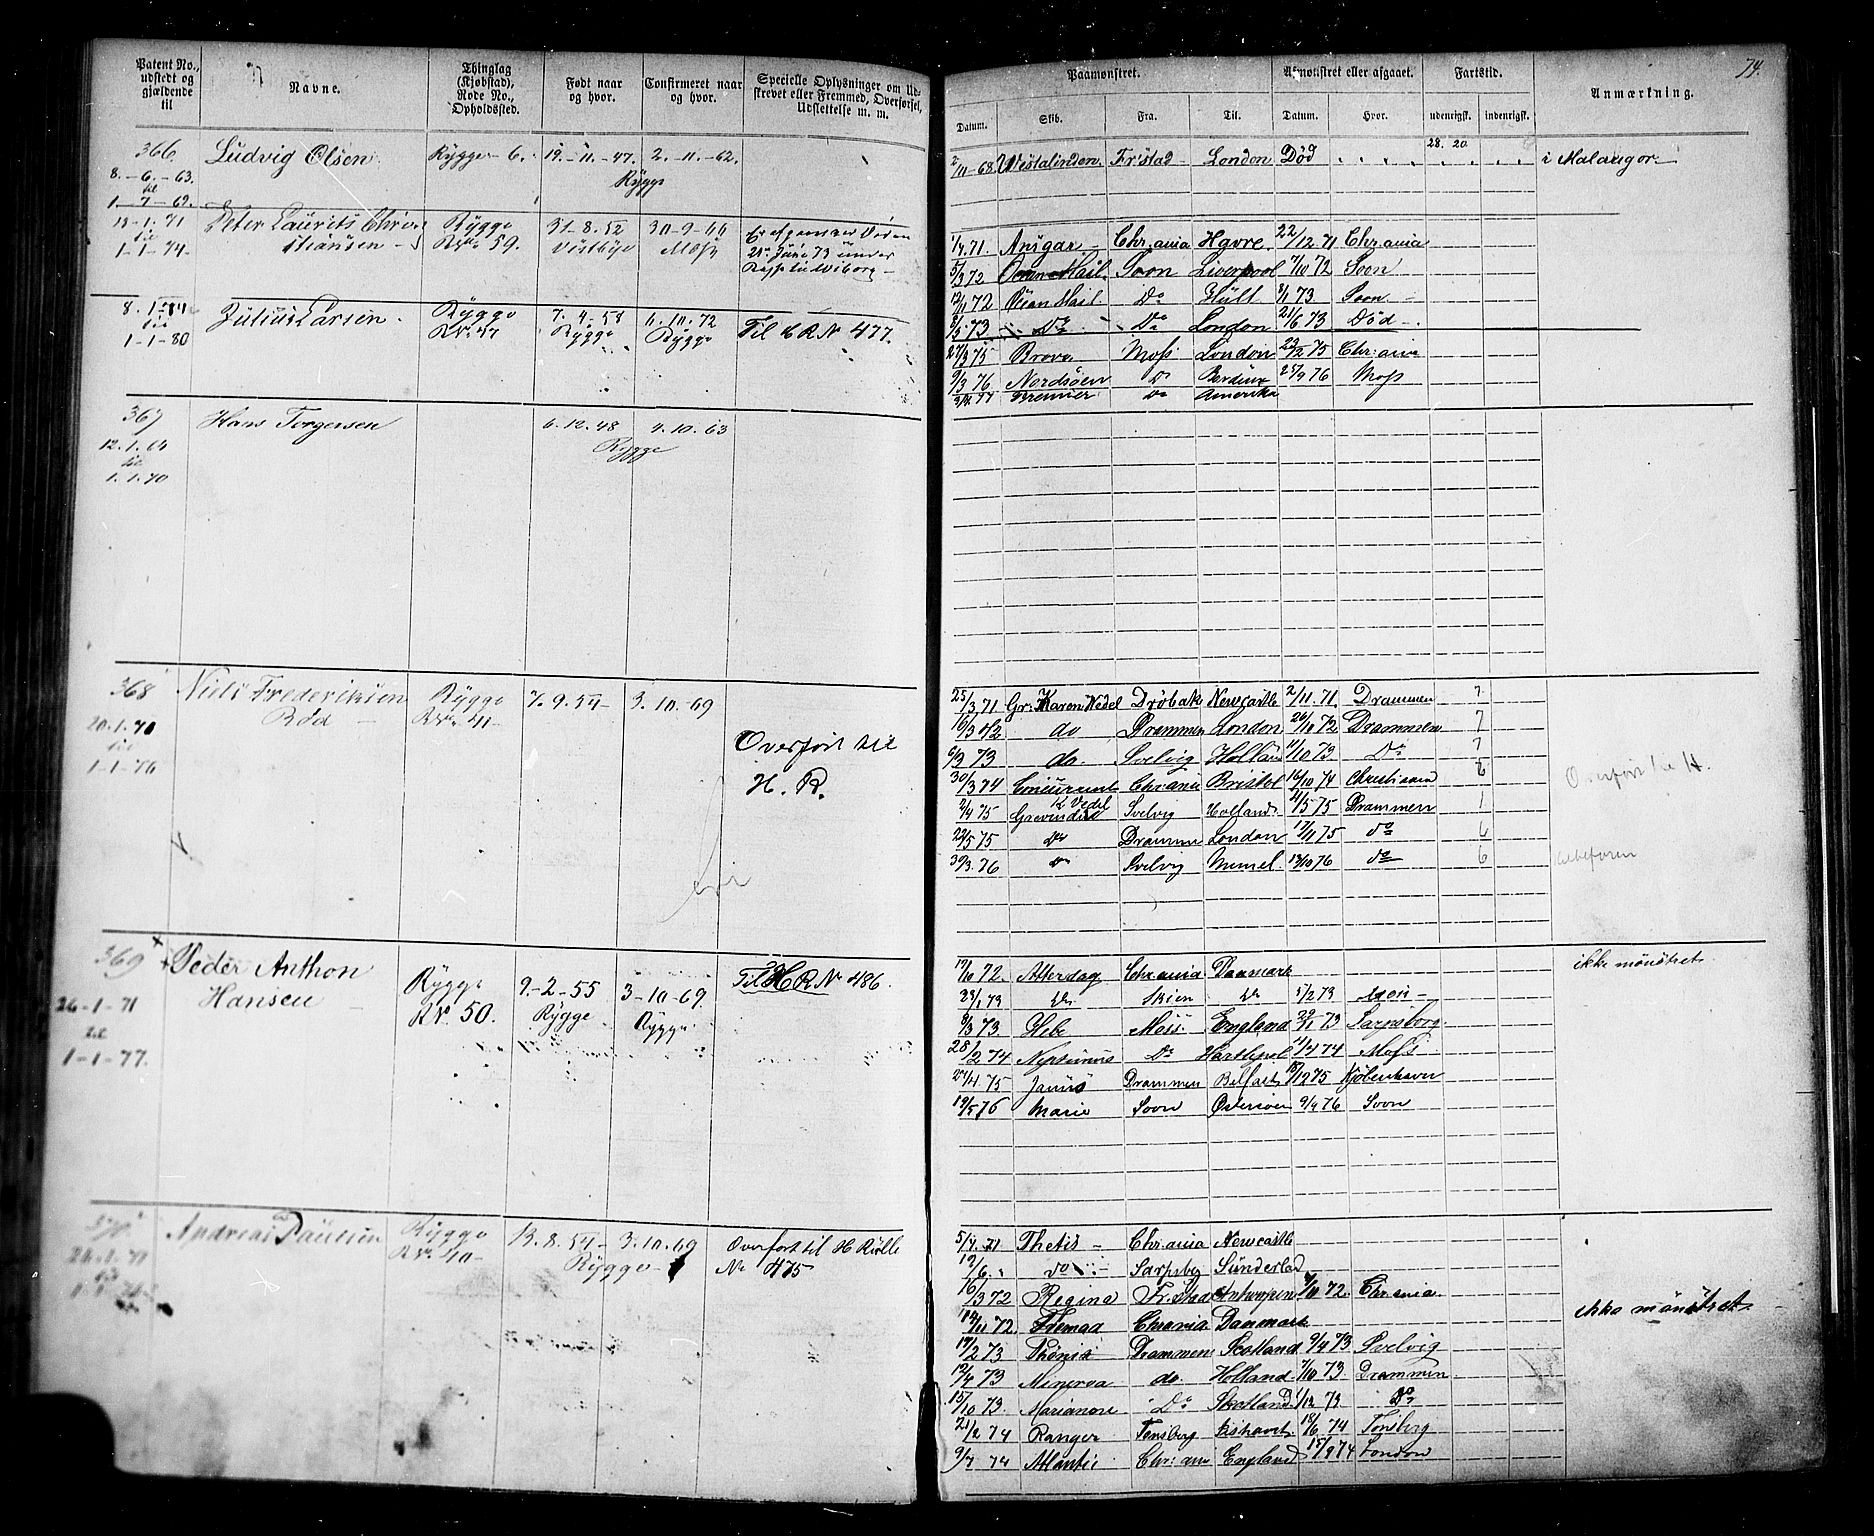 74.
Patent No., udstedt og gjældende til
Navne.
Thinglag (Kjøbstad), Rode No., Opholdssted.
Født naar og hvor.
Confirmeret naar og hvor.
Specielle Oplysninger om Udskrevet eller Fremmed, Overførsel, Udslettelse m. m.
Paamønstret.
Afmønstret eller afgaaet.
Fartstid.
Anmærkning.
Datum. Skib. Fra. Til. Datum. Hvor. udenrigsk. indenrigsk.
366 Ludvig Olsen Rygge 6. 19.-11.-47. 2.-11.-62.
8.-6.-63. Rygge
til
1-7-69.
2/11-68 Vestalinden Fr.stad London Død 28. 20 i Malangor
1-71 Peter Laurits Chris- Rygge 31-8.52 30-9-66
til tiansen RNo. 59. Vestbye Moss
1-1-74.
21de Juni 73 under
1/4.71 Ansgar Chr.ania Havre 22/12.71 Chr.ania
5/3 72 Ocean Mail. Soon Liverpool 7/10 72 Soon
12/11 72 Ocean Mail Do Hull 8/1 73 Soon
8/3 73 Do Do London 21/6 73 Død
8.1-74 Julius Larsen Rygge 7.4-58 6.10.72 Til H R N 477.
til RNo 47 Rygge Rygge
1-1-80
27/3 75 Bravo Moss London 23/2 75 Chr:ania
9/3 76 Nordsöen Do 25/9 76 Moss
77 Premier Do Amerika
367 Hans Torgersen 6.12.48 4.10.63
12.1.64 Rygge
til
1.1.70
368 Niels Frederiksen Rygge 7.9.54- 3.10.69
Röd RNo. 41-
20.1.70
til
1-1-76
Overført til
H. R.
25/3 71 Gr: Karen Wedel Dröbak Newcastle 2/11.71. Drammen 7
16/3 72 do Drammen London 26/10 72 Drammen 7
6/3 73 do. Svelvig Holland 11/10 73 Do 7
30/3 74 Concurrent Chrania Bristol 16/10 74 Christiania 6
2/4 75 Grevinde K Vedel Svelvig Holland 21/5 75 Drammen 1
22/5 75 Do Drammen London 17/11 75 do 6
30/3.76 Do Svelvig Memel. 13/10 76 do 6
Overført til H.
369 Peder Anthon Rygge 9.-2-55 3-10-69. Til H R No 486.
Hansen RNo. 50. Rygge Rygge
26-1-71
til
1-1-77.
19/10 72. Altersdag Chr.ania Danmark ikke mönstret
23/1 73 Do Skien Do 5/2 73
8/3 73 Hebe Moss England 29/1 73 Sarpsborg
28/2 74 Neptunus Do Hartlepol 11/4 74 Moss
27/4 75 Janus Drammen Belfast 18/12 75 Kjøbenhavn
19/5 76 Marie Soon Østersøen 9/9 76 Soon
370 Andreas Paulsen Rygge 13.8.54- 3.10.69 Overfört til H Rulle
RNo. 40- Rygge No 475
5/4.71 Thetis Chr.ania Newcastle
12/6. do Sarpsbg Sunderlad
16/3 72 Regina Fr.stad Antwerpen 9/10 72. Chr.ania.
14/11 72. Fremad Chrania. Danmark ikke mönstret
17/2 73 Phönix Drammen Scotland 9/4 73 Svelvig
19/4 73 Minerva do Holland 7/10 73. Drammen
15/10 73. Marianne Do Skotland 1/12 73 Do
21/2 74 Ranger Tønsberg Ishavet 18/6 74 Tønsberg
9/7 74 Atlantic Chr:ania England 15/9 74 London